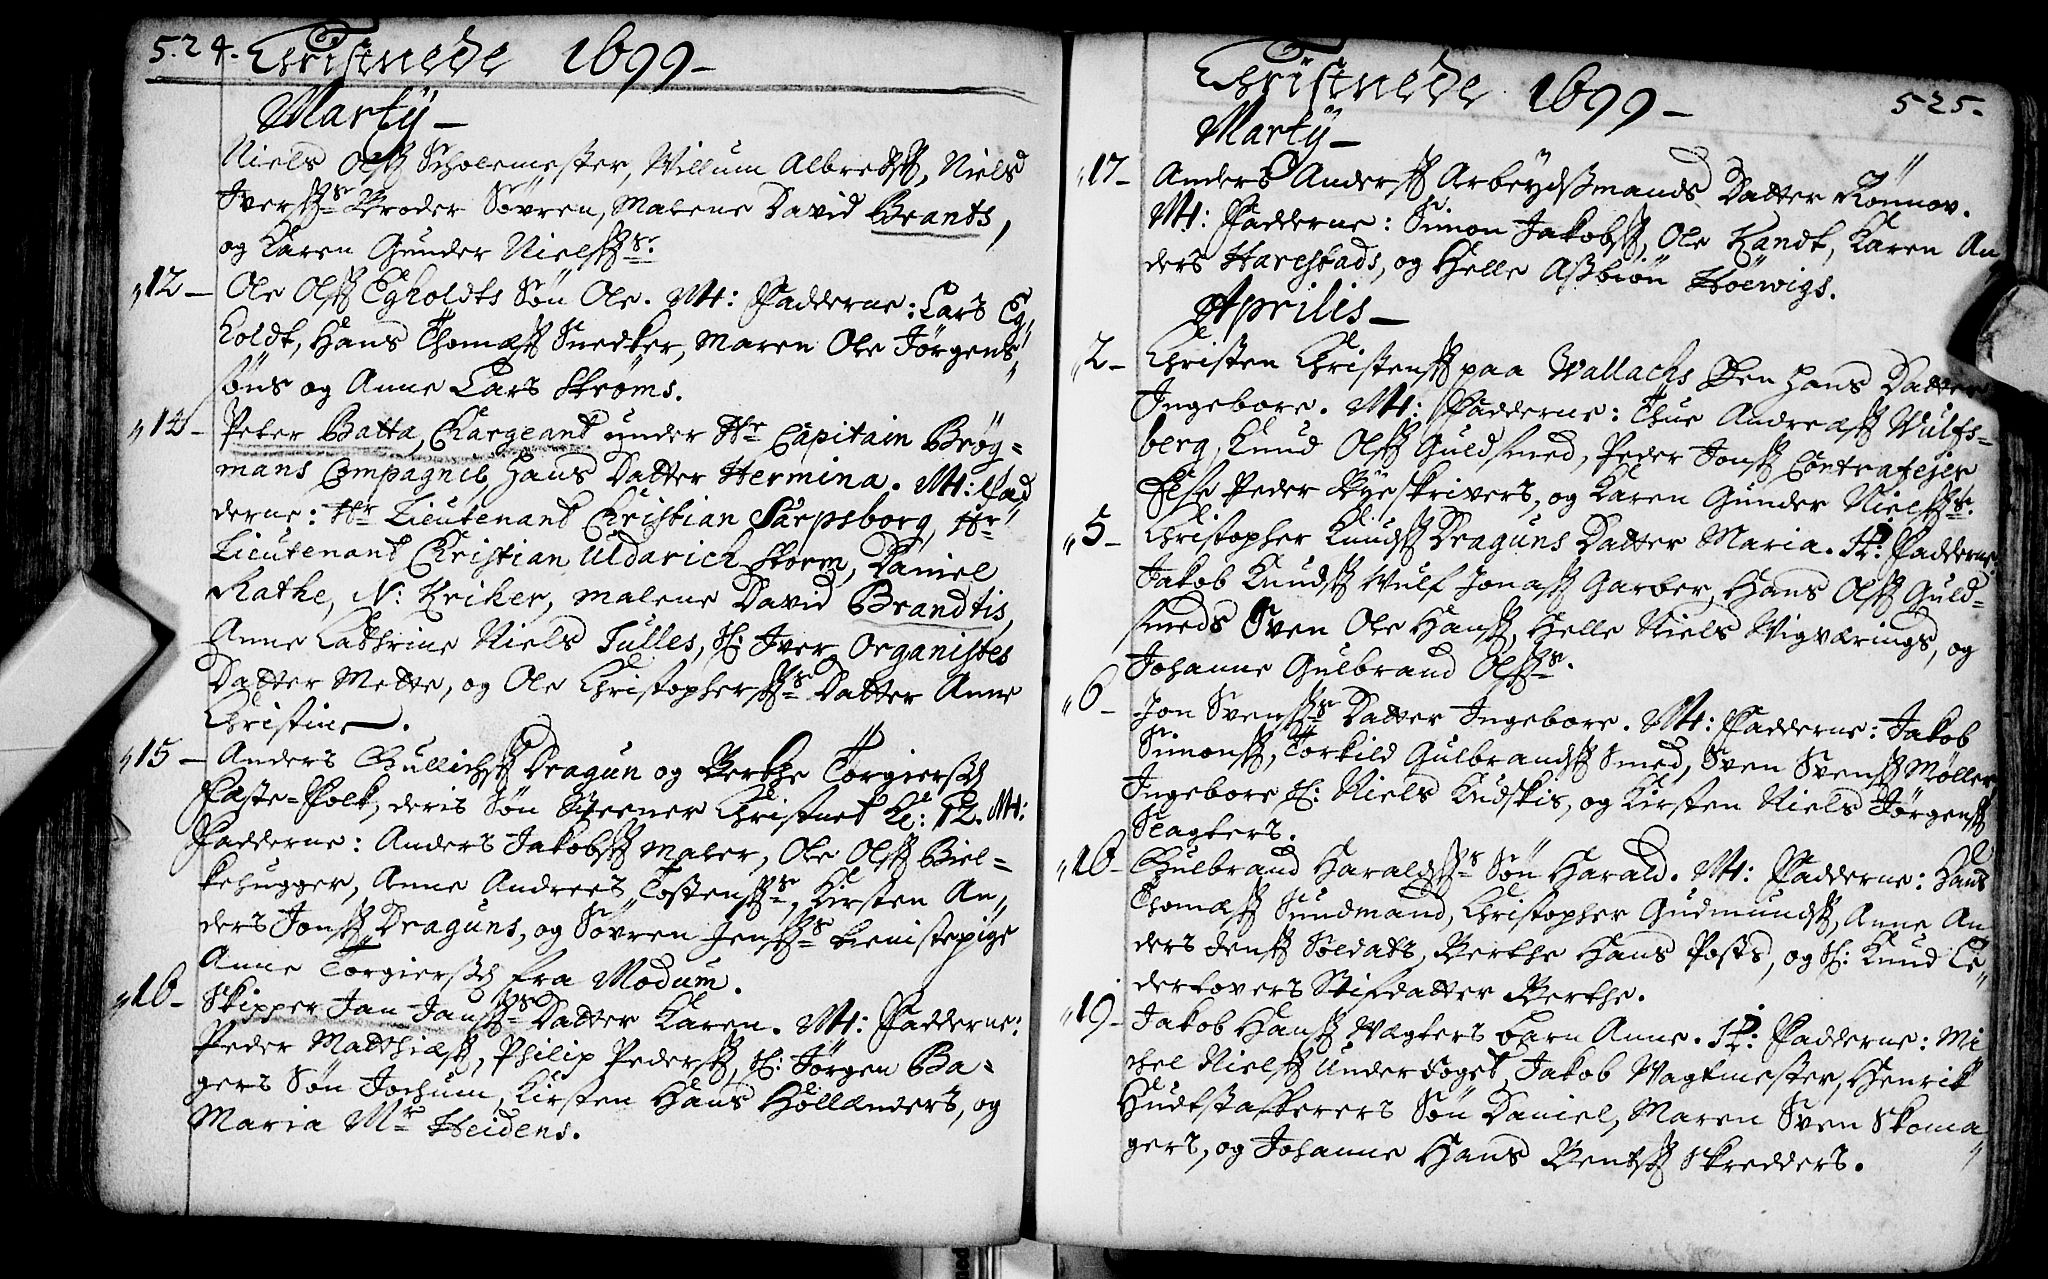 524. Christnede 1699-
Martÿ-
Niels Olsß Scholemester, Willum Albretsß, Niels
Iversß's Broder Sövren, Malene David Brants,
og Karen Gunder Nielsß's.
"12- Ole Olsß Egholdts Sön Ole. M: Fadderne: Lars Eg"
holdt, Hans Thomæsß Snedker, Maren Ole Jörgens"
söns og Anne Lars Ströms.
"14- Peter Batta, Chargeant under Hr Capitain Brög=
mans Compagnie, hans Datter Hermina. M: Fad"
derne: Hr Lieutenant Christian Särpsborg, Hr
Lieutenant Christian Uldarich Storm, Daniel
Rathe, N: Kriker, Malene David Brandtis,
Anne Cathrine Niels Tulles, S: Iver Organistes
Datter Mette, og Ole Christophersß's Datter Anne
Christine.
"15- Anders Gullichsß Dragun og Berthe Torgiersd
Fæste-Folk, deris Sön Steener Christnet Kl: 12. M:
Fadderne: Anders Jakobsß Maler, Ole Olsß Biel=
kehugger, Anne Andrees Tostensß's, Kirsten An"
ders Jonsß Draguns, og Sövren Jensß's tienistepige
Anne Torgiersd fra Modum.
"16- Skipper Jan Jansß's Datter Karen. M: Fadderne:
Peder Matthiæsß, Philip Pedersß, S: Jörgen Ba=
gers Sön Jochum, Kirsten Hans Höllænders, og
Maria Mr Heidens.
Christnede 1699- 525.
Martÿ-
"17- Anders Andersß Arbeÿdsmands Datter Rönnov.
M: Fadderne: Simon Jakobsß, Ole Kandt, Karen An"
ders Harestads, og Helle Asbiön Höewigs.
Aprilis-
"2- Christen Christensß paa Wallachs Een hans Datter
Ingebore. M: Fadderne: Thue Andreæsß Wulfs=
berg, Knud Olsß Guldsmed, Peder Jonsß Contrafejer
Else Peder Byeskrivers, og Karen Gunder Nielsß's.
"5- Christopher Knudsß Draguns Datter Maria. H: Fadderne
Jakob Knudsß Wulf Jonasß Garber, Hans Olsß Guld=
smeds Sven Ole Hansß, Helle Niels Wigværings, og
Johanne Gulbrand Olsß's.
"6- Jon Svensß's Datter Ingebore. M: Fadderne: Jakob
Simonsß, Torkild Gulbrandsß Smed, Sven Svensß Möller
Ingebore S: Niels Kudskis, og Kirsten Niels Jörgensß
Slagters.
"16- Gulbrand Haraldsß's Sön Harald. M: Fadderne: Hans
Thomæsß Sundmand, Christopher Gudmundsß, Anne An"
ders Jensß Soldats, Berthe Hans Posts, og S: Knud Le"
dertovers Stifdatter Berthe.
"19- Jakob Hansß Vægters barn Anne. H: Fadderne: Mi
chel Nielsß Underfoget, Jakob Wagtmester, Henrik
Hudtstafferers Sön Daniel, Maren Sven Skoma"
gers, og Johanne Hans Bentsß Skredders.